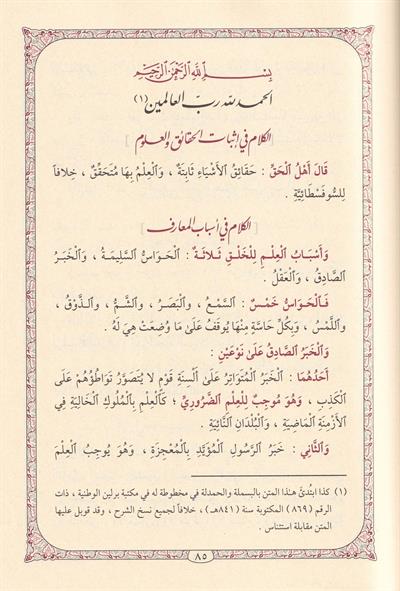 بِسْمِ اللَّهِ الرَّحْمَٰنِ الرَّحِيمِ
الحمد لله ربّ العالمين (١)
[الكلام في إثبات الحقائق والعلوم]
قَالَ أَهْلُ الْحَقِّ : حَقَائِقُ الْأَشْيَاءِ ثَابِتَةٌ ، وَالْعِلْمُ بِهَا مُتَحَقِّقٌ ، خِلَافاً
لِلسُّوفَسْطَائِيَّةِ .
[الكلام في أسباب المعارف]
وَأَسْبَابُ الْعِلْمِ لِلْخَلْقِ ثَلَاثَةٌ : الْحَوَاسُّ السَّلِيمَةُ ، وَالْخَبَرُ
الصَّادِقُ ، وَالْعَقْلُ .
فَالْحَوَاسُّ خَمْسٌ : السَّمْعُ ، وَالْبَصَرُ ، وَالشَّمُّ ، وَالذَّوْقُ ،
وَاللَّمْسُ ، وَبِكُلِّ حَاسَّةٍ مِنْهَا يُوقَفُ عَلَىٰ مَا وُضِعَتْ هِيَ لَهُ .
وَالْخَبَرُ الصَّادِقُ عَلَىٰ نَوْعَيْنِ :
أَحَدُهُمَا : الْخَبَرُ الْمُتَوَاتِرُ عَلَىٰ أَلْسِنَةِ قَوْمٍ لَا يُتَصَوَّرُ تَوَاطُؤُهُمْ عَلَى
الْكَذِبِ ، وَهُوَ مُوجِبٌ لِلْعِلْمِ الضَّرُورِيِّ ؛ كَالْعِلْمِ بِالْمُلُوكِ الْخَالِيَةِ فِي
الْأَزْمِنَةِ الْمَاضِيَةِ ، وَالْبُلْدَانِ النَّائِيَةِ .
وَالثَّانِي : خَبَرُ الرَّسُولِ الْمُؤَيَّدِ بِالْمُعْجِزَةِ ، وَهُوَ يُوجِبُ الْعِلْمَ
(١) كذا ابتُدئ هذا المتن بالبسملة والحمدلة في مخطوطة له في مكتبة برلين الوطنية ، ذات
الرقم (٨٦٩) المكتوبة سنة (٨٤١هـ) ، خلافاً لجميع نسخ الشرح ، وقد قوبل عليها
المتن مقابلة استئناس .
٨٥